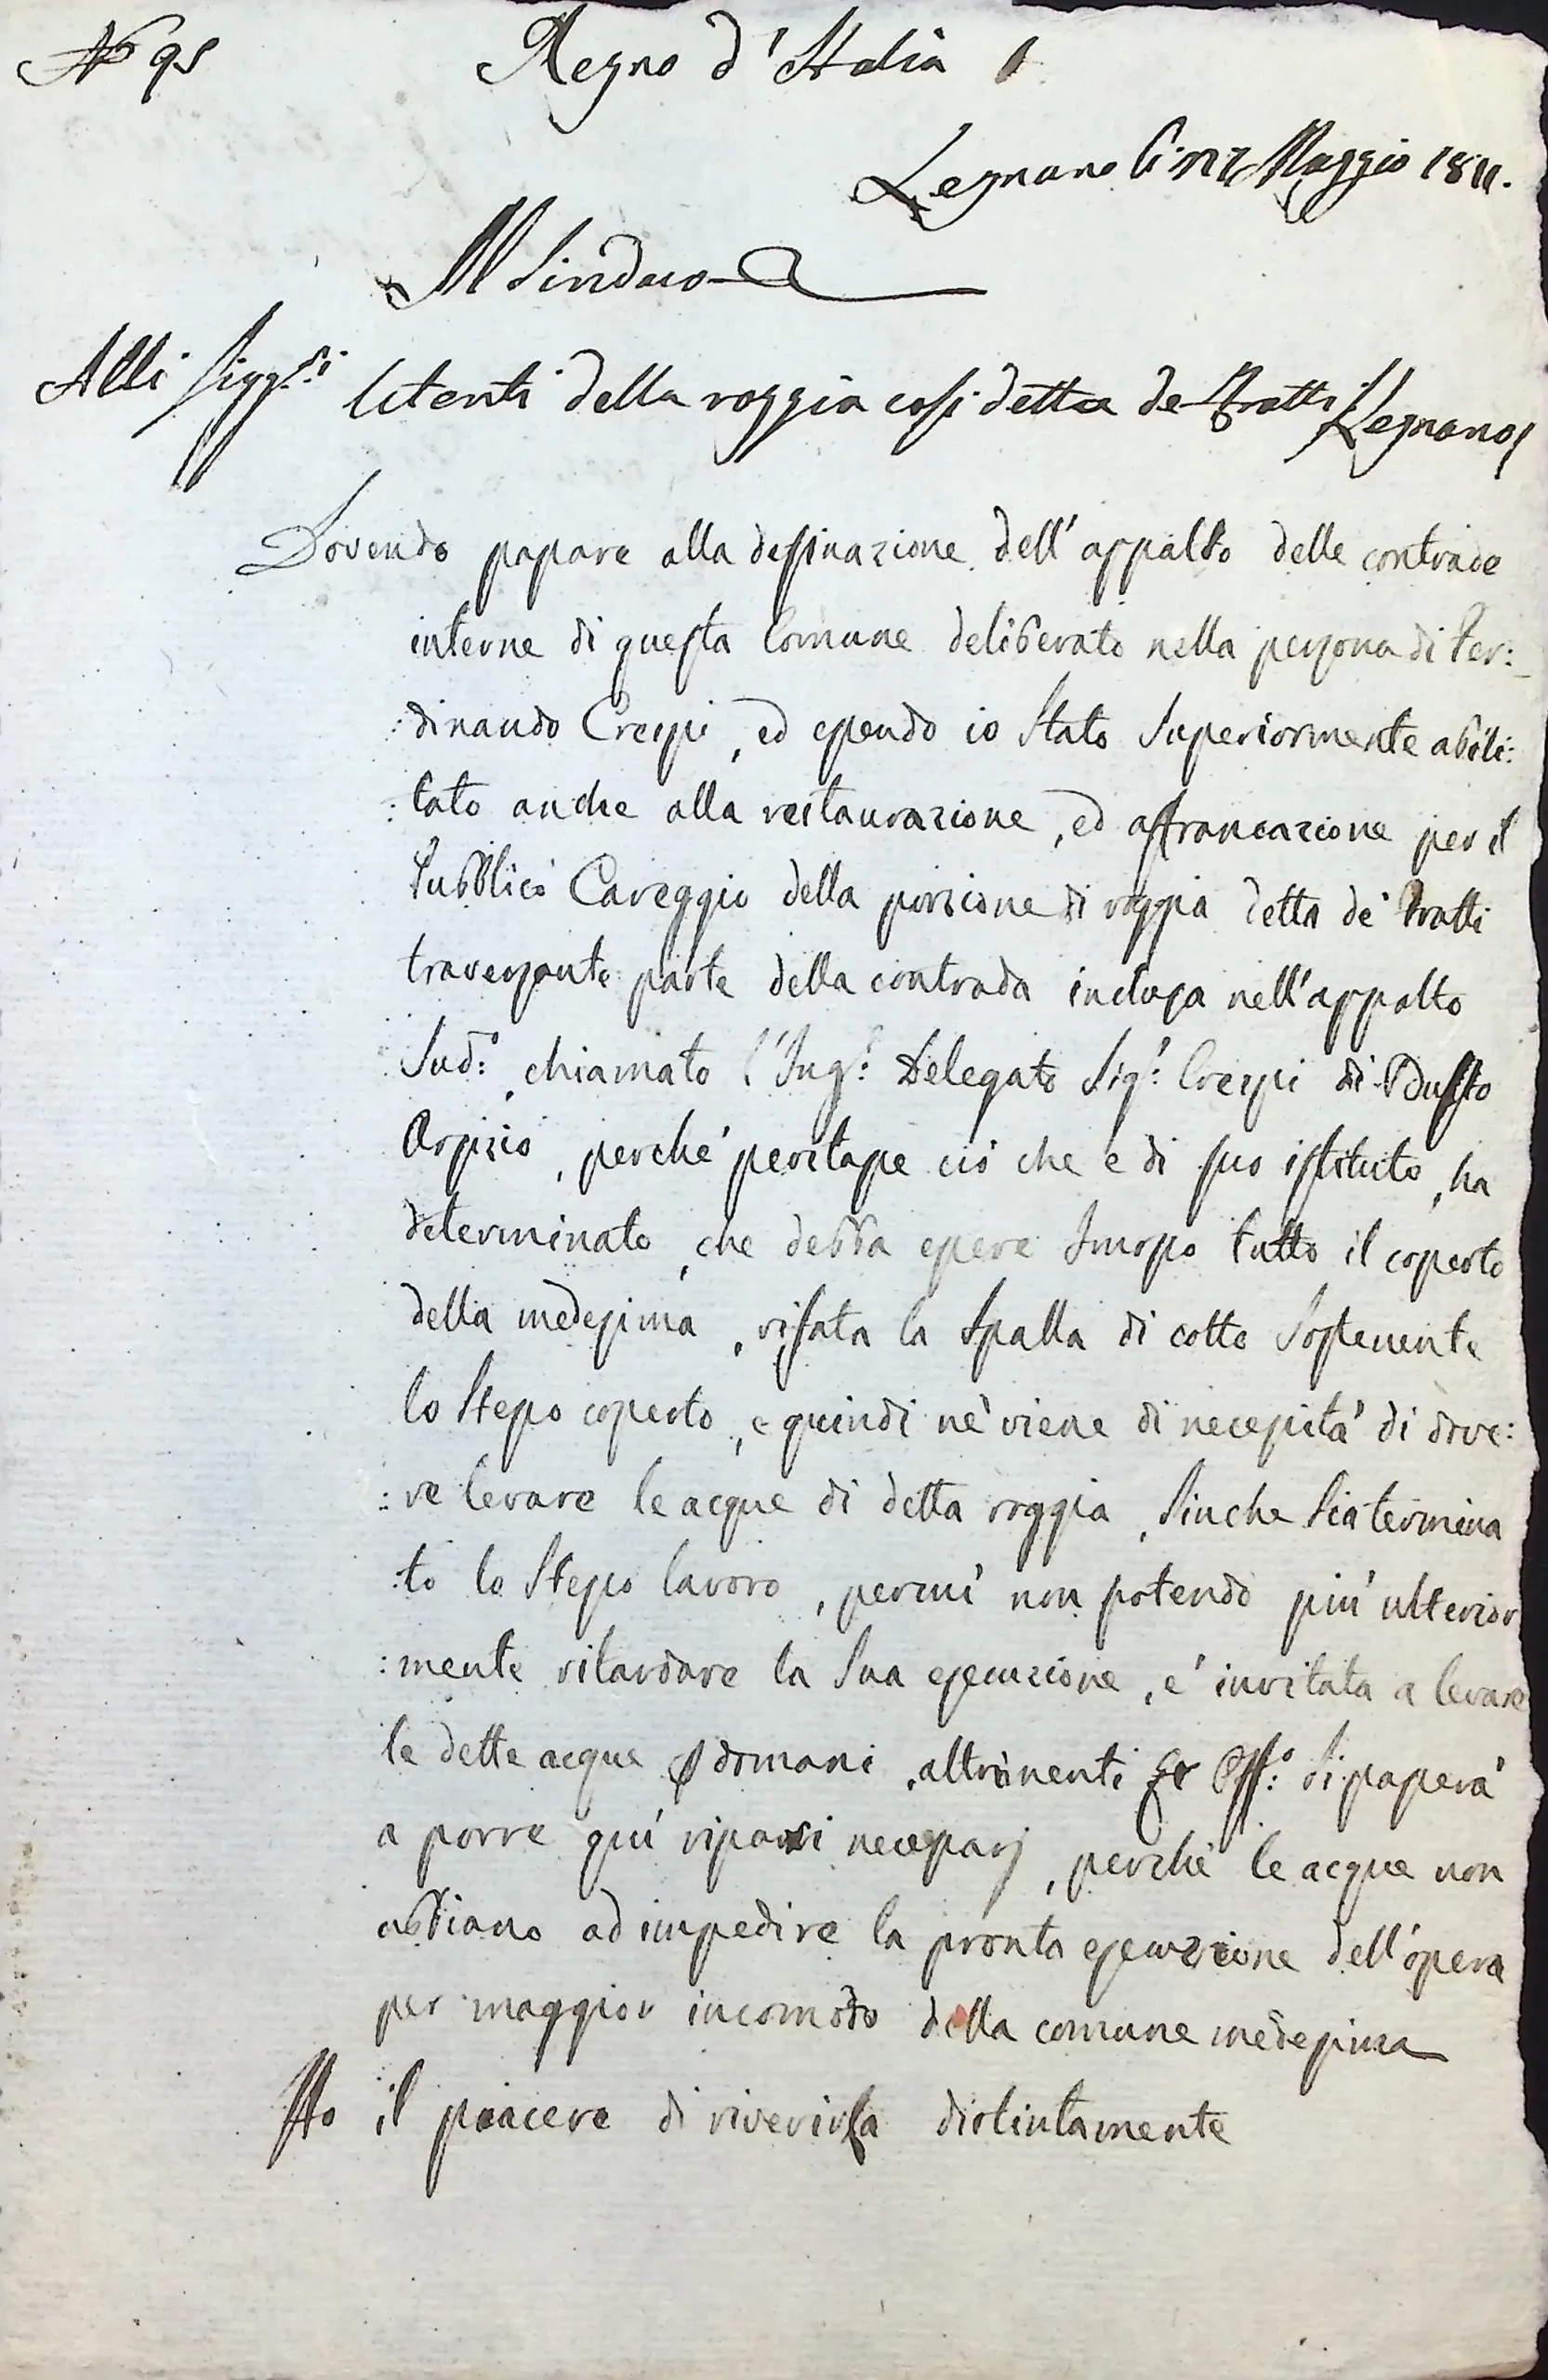 N.° 95
Regno d'Italia
Legnano li Maggio 1811.
Il Sindaco
Alli Sigg.ri Utenti della roggia così detta de Pratti Legnano
Dovendo passare alla dessinazione dell'appalto delle contrade
interne di questa Comune deliberato nella persona di Fer:
:dinando Crespi, ed essendo io Stato Superiormente abili:
:tato anche alla restaurazione, ed affrancazione per il
Pubblico Careggio della porzione di roggia detta de' Pratti
traversante parte della contrada inclusa nell'appalto
Sud.°, chiamato l'Ing.e Delegato Sig.r Crespi di Bussto
Arsizio, perché peritasse ciò che è di suo istituto, ha
determinato, che debba essere Smosso tutto il coperto
della medesima, rifata la Spalla di cotto Sostenente
lo Stesso coperto, e quindi nè viene di necessità di dove:
:re levare le acque di detta roggia, Sinche Sia termina
:to lo Stesso lavoro, percui non potendo più ulterior
:mente ritardare la Sua esecuzione, e' invitata a levare
le dette acque domani, altrimenti Ex Off.° Si passerà
a porre qui ripari necessarj, perchè le acque non
abbiano ad impedire la pronta esecuzione dell'opera
per maggior incomodo della comune medesima
Ho il piacere di riverirla distintamente